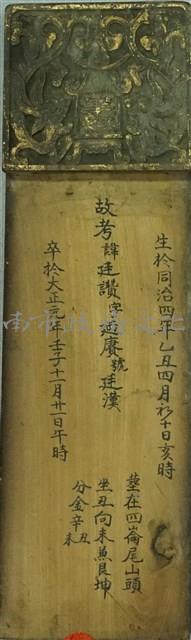 生於同治四年乙丑四月初十日亥時
故考諱廷讚字廼賡號廷漢
卒於大正元年壬子十一月廿一日午時
塟在四崙尾山頭
坐丑向未兼艮坤
分金辛丑
辛未